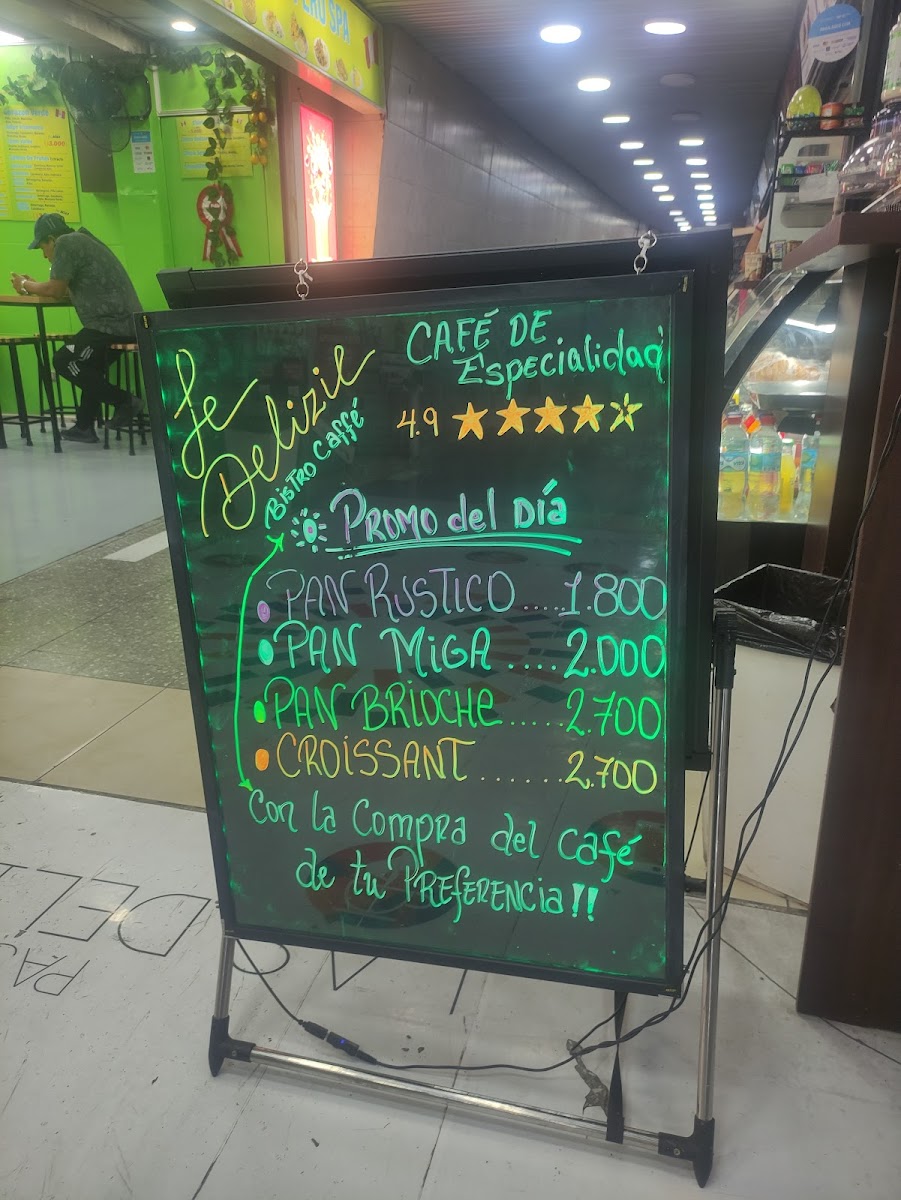 SPA
3.000
Le
Delizie
Bistro Caffé
CAFÉ DE
Especialidad
4.9
Promo del Día
PAN RUSTICO.....1.800
PAN MIGA....2.000
PAN BRIOCHE.....2.700
CROISSANT.......2.700
Con la Compra del café
de tu PREFERENCIA!!
PA
DEL